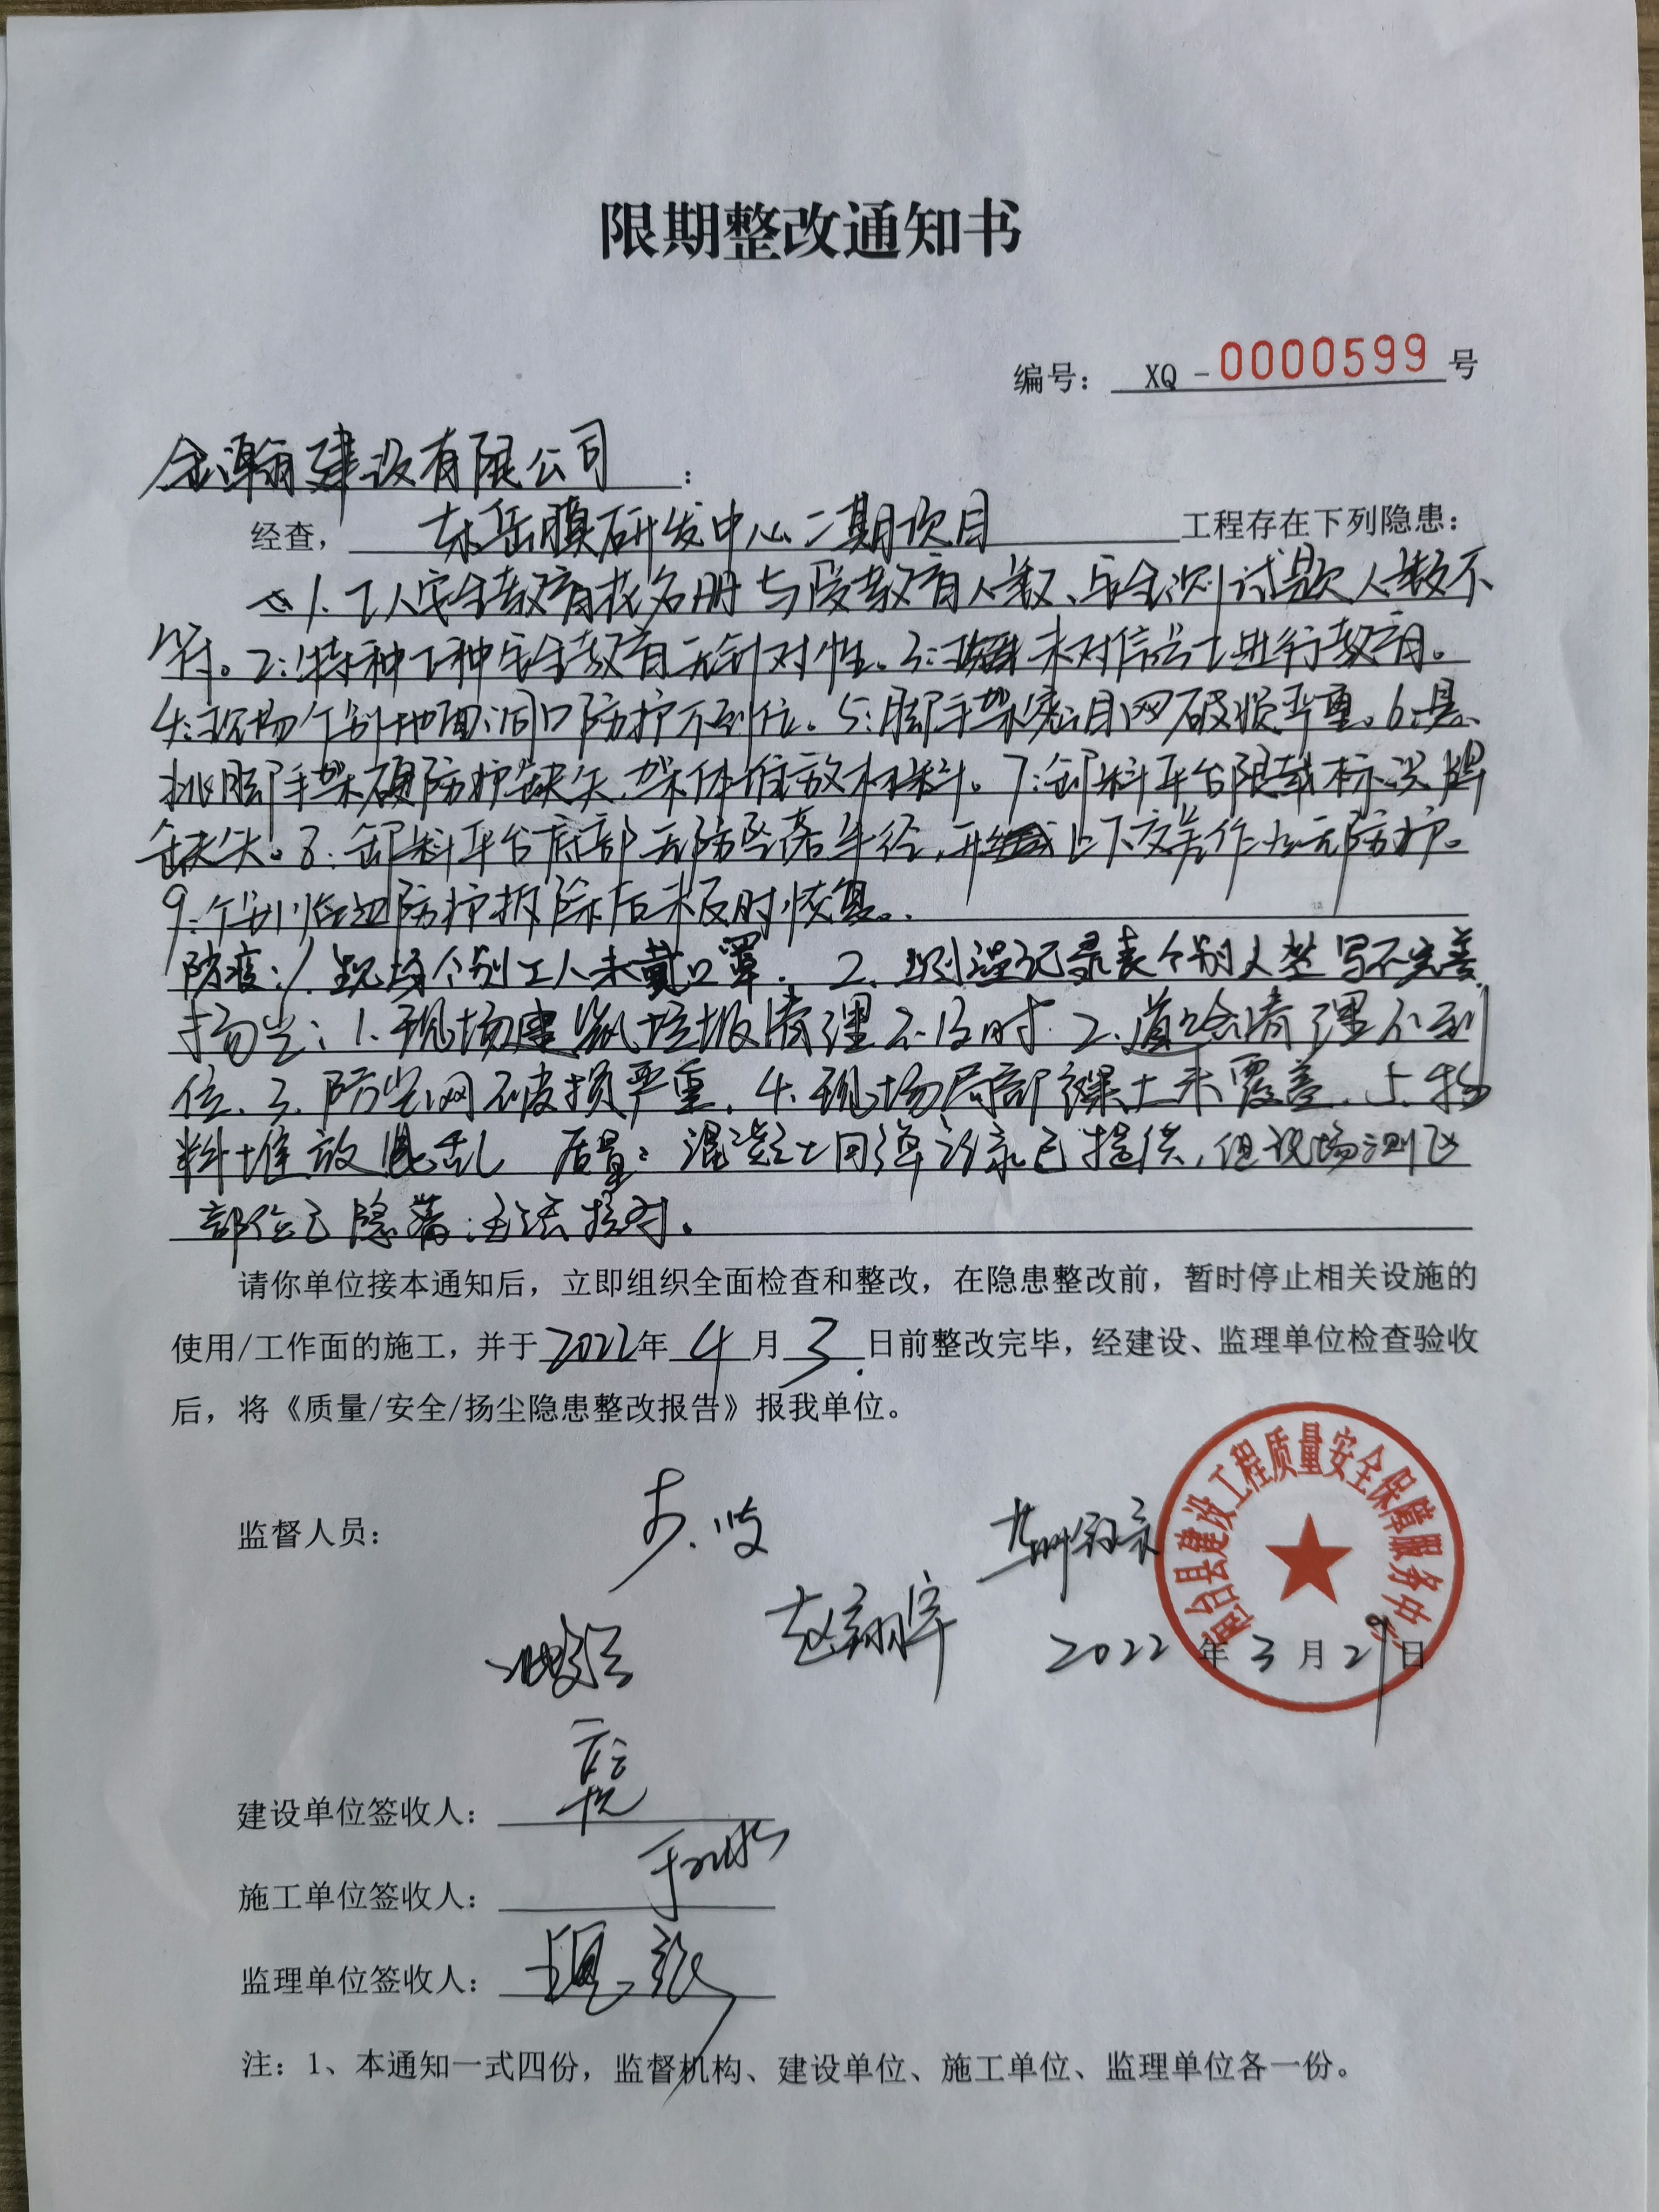 限期整改通知书
编号： XQ -0000599 号
金瀚建设有限公司：
经查， 东岳膜研发中心二期项目 工程存在下列隐患：
1. 工人安全教育花名册与受教育人数、安全测试题人数不
符。2：特种工种安全教育无针对性。3： 未对信号工进行教育。
4：现场个别地面洞口防护不到位。5：脚手架密目网破损严重。6：悬
挑脚手架硬防护缺失，架体堆放材料。7：卸料平台限载标识牌
缺失。8：卸料平台底部无防坠落半径，形成上下交叉作业无防护。
9：个别临边防护拆除后未及时恢复。
防疫：1. 现场个别工人未戴口罩. 2. 测温记录表个别人填写不完善
扬尘：1. 现场建筑垃圾清理不及时. 2. 道路清理不到
位. 3. 防尘网破损严重. 4. 现场局部裸土未覆盖. 5. 物
料堆放混乱 质量：混凝土回弹记录已提供，但现场测区
部位已隐蔽，无法核对。
请你单位接本通知后，立即组织全面检查和整改，在隐患整改前，暂时停止相关设施的
使用/工作面的施工，并于2022年 4 月 3 日前整改完毕，经建设、监理单位检查验收
后，将《质量/安全/扬尘隐患整改报告》报我单位。
监督人员：
赵翔宇
桓台县建设工程质量安全保障服务中心
2022 年 3 月 29 日
建设单位签收人：
施工单位签收人：
监理单位签收人：
注：1、本通知一式四份，监督机构、建设单位、施工单位、监理单位各一份。